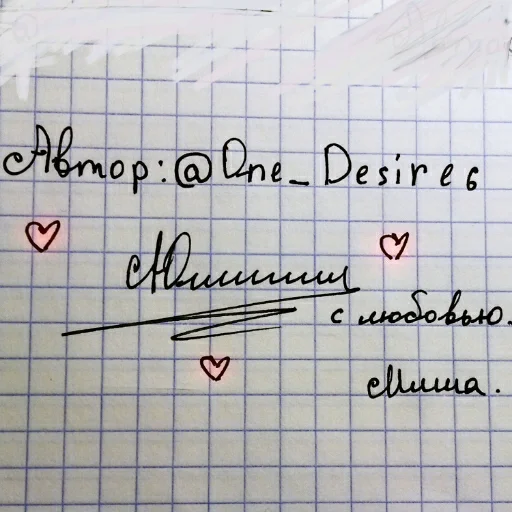 Автор: @One_Desire6
с любовью.
Миша.